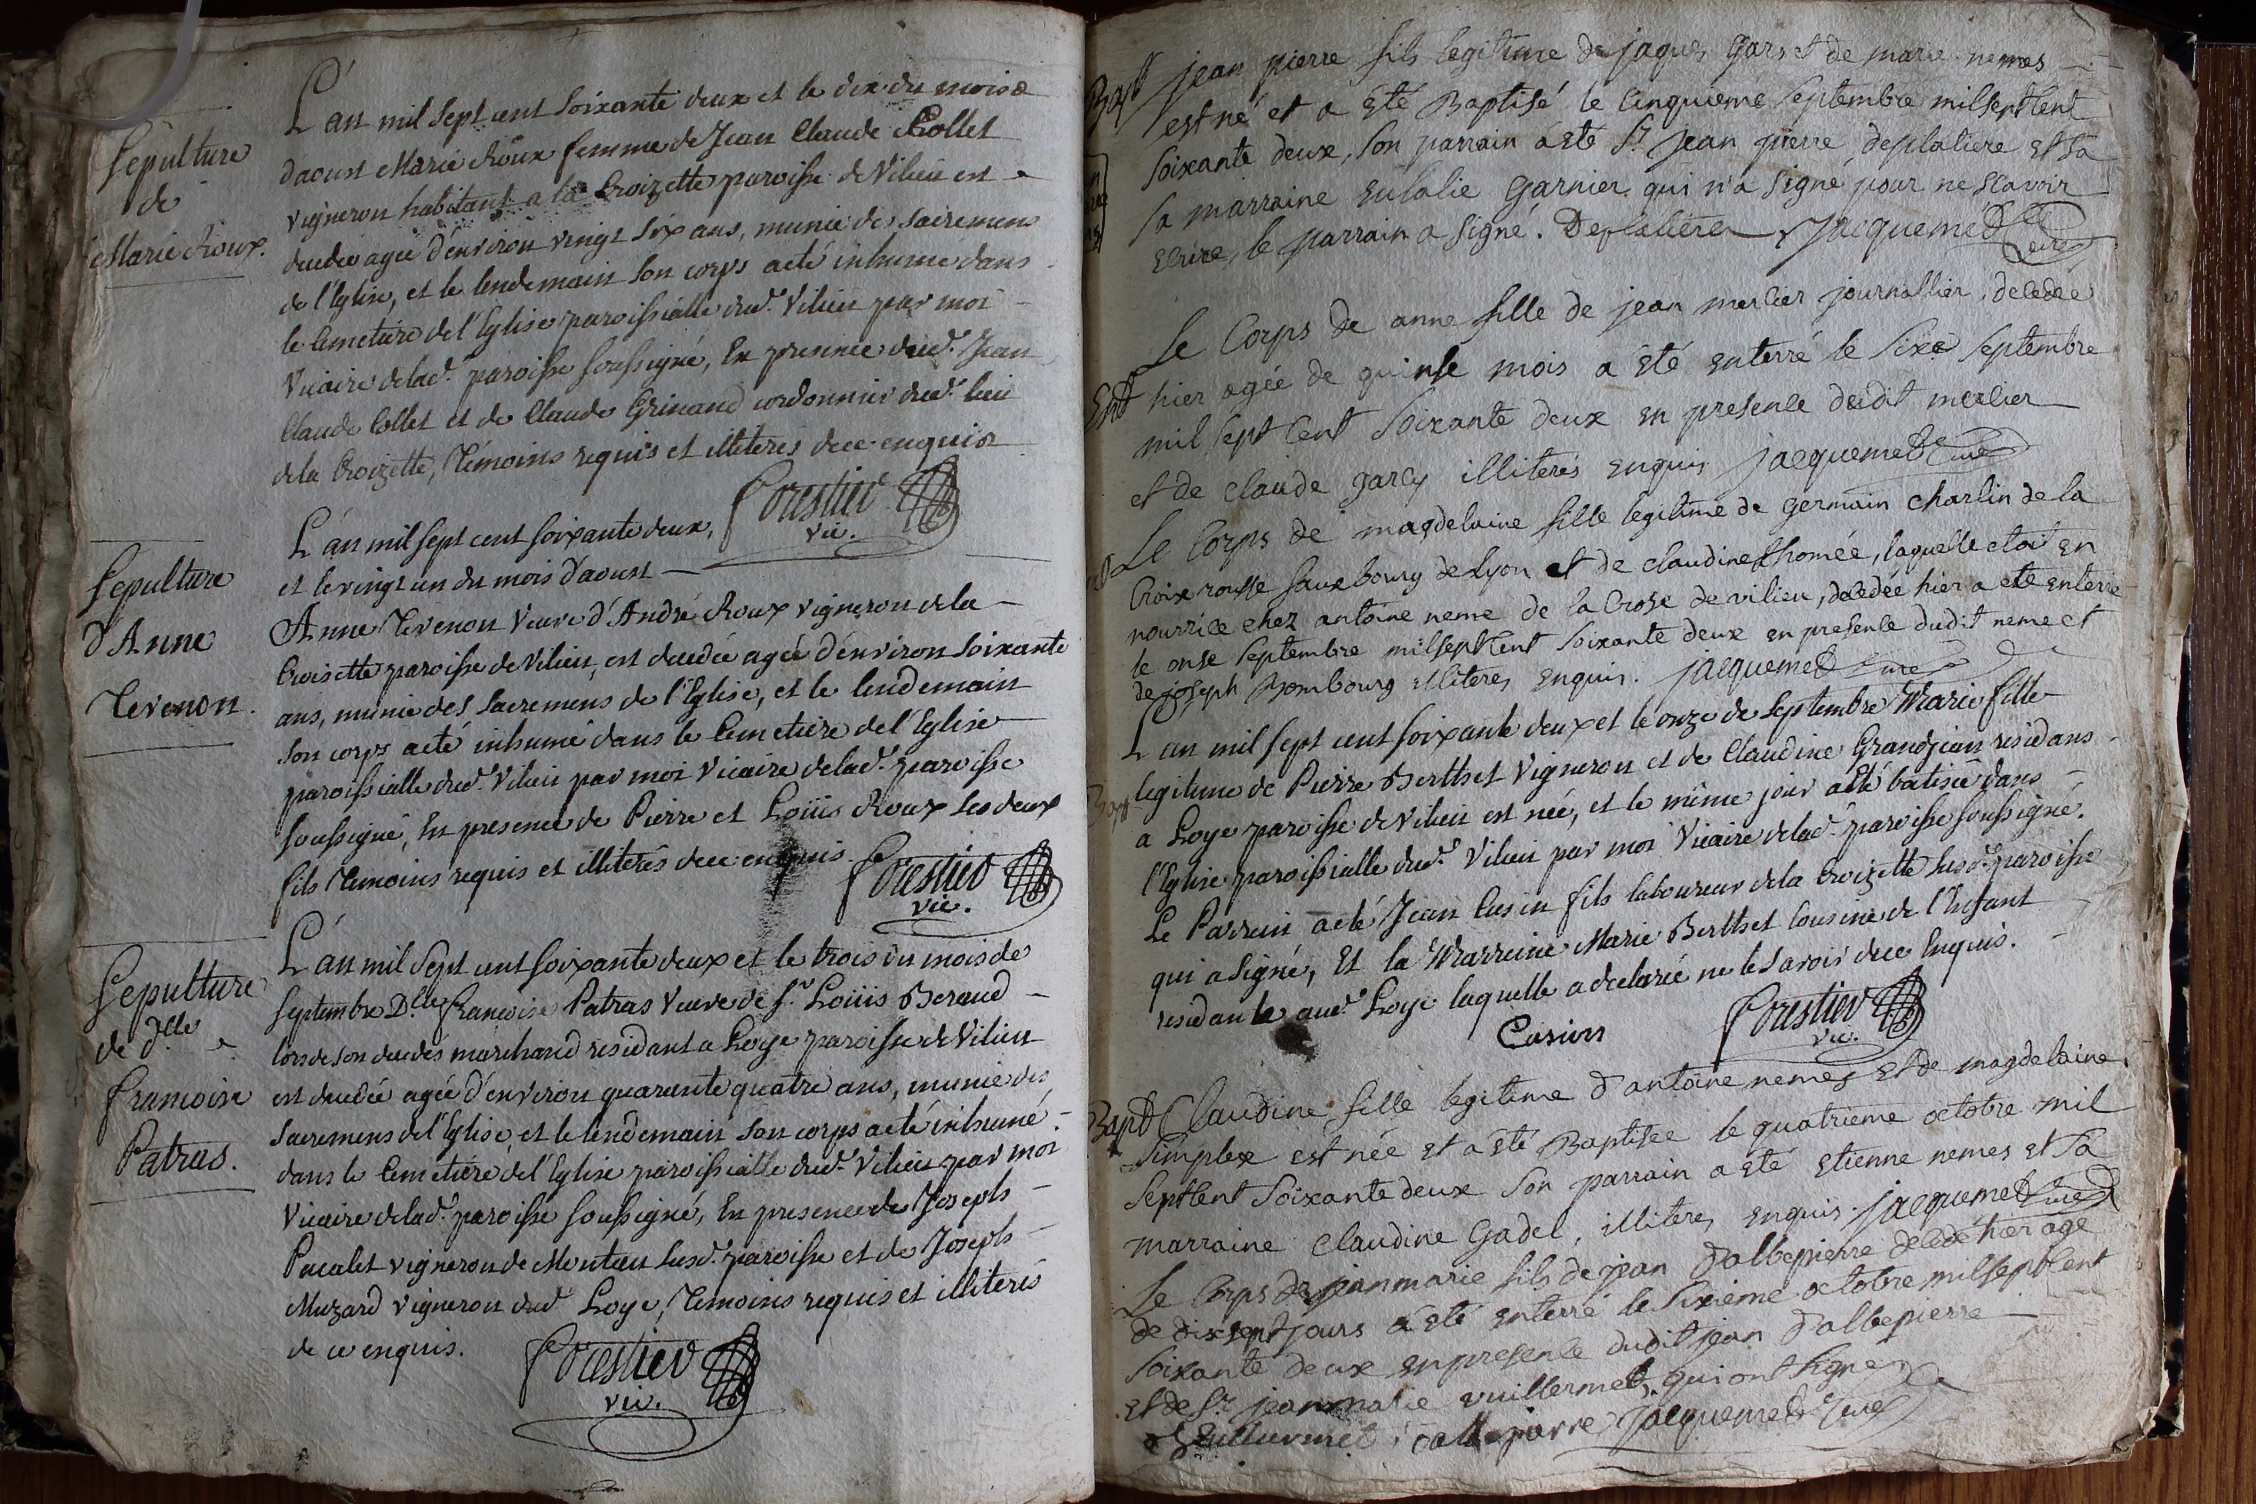 Sepulture
de
Marie Roux.
L'an mil sept cent soixante deux et le dix du mois
daoust Marie Roux femme de Jean Claude Collet
vigneron habitant a la Croizette paroisse de Vilieu est
decedée agée d'environ vingt six ans, munie des sacremens
de l'Eglise, et le lendemain son corps a eté inhumé dans
le Cimetiere de l'Eglise paroissialle dud. Vilieu par moi
Vicaire de lad. paroisse soussigné, En presence dud. Jean
Claude Collet et de Claude Grinand cordonnier dud. lieu
de la Croizette, Témoins requis et illiterés de ce enquis
Forestier
vic.
Sepulture
d'Anne
Tevenon.
L'an mil sept cent soixante deux,
et le vingt un du mois d'aoust
Anne Tevenon Veuve d'André Roux vigneron de la
Croisette paroisse de Vilieu, est decedée agée d'environ soixante
ans, munie des Sacremens de l'Eglise, et le lendemain
son corps a eté inhumé dans le Cimetiere de l'Eglise
paroissialle dud. Vilieu par moi Vicaire de lad. paroisse
soussigné, En presence de Pierre et Loüis Roux ses deux
fils Temoins requis et illiterés de ce enquis
Forestier
vic.
Sepulture
de dlle
francoise
Patras.
L'an mil sept cent soixante deux et le trois du mois de
septembre Dlle francoise Patras Veuve de sr. Loüis Beraud
lors de son deces marchand residant a Loye paroisse de Vilieu
est decedée agée d'environ quarante quatre ans, munie des
sacremens de l'Eglise, et le lendemain son corps a eté inhumé
dans le Cimetiere de l'Eglise paroissialle dud. Vilieu par moi
Vicaire de lad. paroisse soussigné, En presence de Joseph
Pacalet vigneron de Montau susd. paroisse et de Joseph
Muzard vigneron dud. Loye, Temoins requis et illiterés
de ce enquis.
Forestier
vic.
Bapt jean pierre fils legitime de jaques Gars et de marie nemes
est né et a Eté Baptisé le Cinquieme septembre mil sept Cent
soixante deux, son parrain a Eté Sr jean pierre deplatiere Et sa
sa marraine Eulalie Garnier qui n'a signé pour ne sçavoir
ecrire, le parrain a signé. Deplatiere Jacquemet Curé
Ent Le Corps de anne fille de jean merlier journallier, decedée
hier agée de quinse mois a Eté Enterré le sixe septembre
mil sept Cent soixante deux En presence dudit merlier
et de claude Garcy illiterés Enquis Jacquemet Curé
Le Corps de magdelaine fille legitime de Germain Charlin de la
Croix rousse fauxbourg de Lyon et de claudine Thomée, laquelle etoit En
nourrice chez antoine neme de la Crose de vilieu, decedée hier a ete enterré
le onse septembre mil sept Cent soixante deux en presence dudit neme et
de joseph Bombourg illiteres Enquis. Jacquemet Curé
L'an mil sept cent soixante deux et le onze de septembre Marie fille
Bapt legitime de Pierre Berthet Vigneron et de Claudine Grandjean residans
a Loye paroisse de Vilieu est née, et le même jour a eté batisée dans
l'Eglise paroissialle dud. Vilieu par moi Vicaire de lad. paroisse soussigné.
Le Parrein a eté Jean Cusin fils laboureur de la Croizette susd. paroisse
qui a signé, Et la Marreine Marie Berthet Cousine de l'Enfant
residante aud. Loye laquelle a declaré ne le savoir de ce Enquis.
Cusin Forestier
vic.
Bapt Claudine fille legitime d'antoine nemes Et de magdelaine
simplex est née et a été Baptisée le quatrieme octobre mil
sept Cent soixante deux son parrain a Eté Etienne nemes et sa
marraine Claudine Gadel, illiteres Enquis. Jacquemet Curé
Le Corps de jean marie fils de jean Dalbepierre decedé hier agé
de dix sept jours a eté enterré le sixieme octobre mil sept Cent
soixante deux En presence dudit jean Dalbepierre
Et de Sr jean marie vuillermet, qui ont signé
Vuillermet Dalbepierre Jacquemet Curé